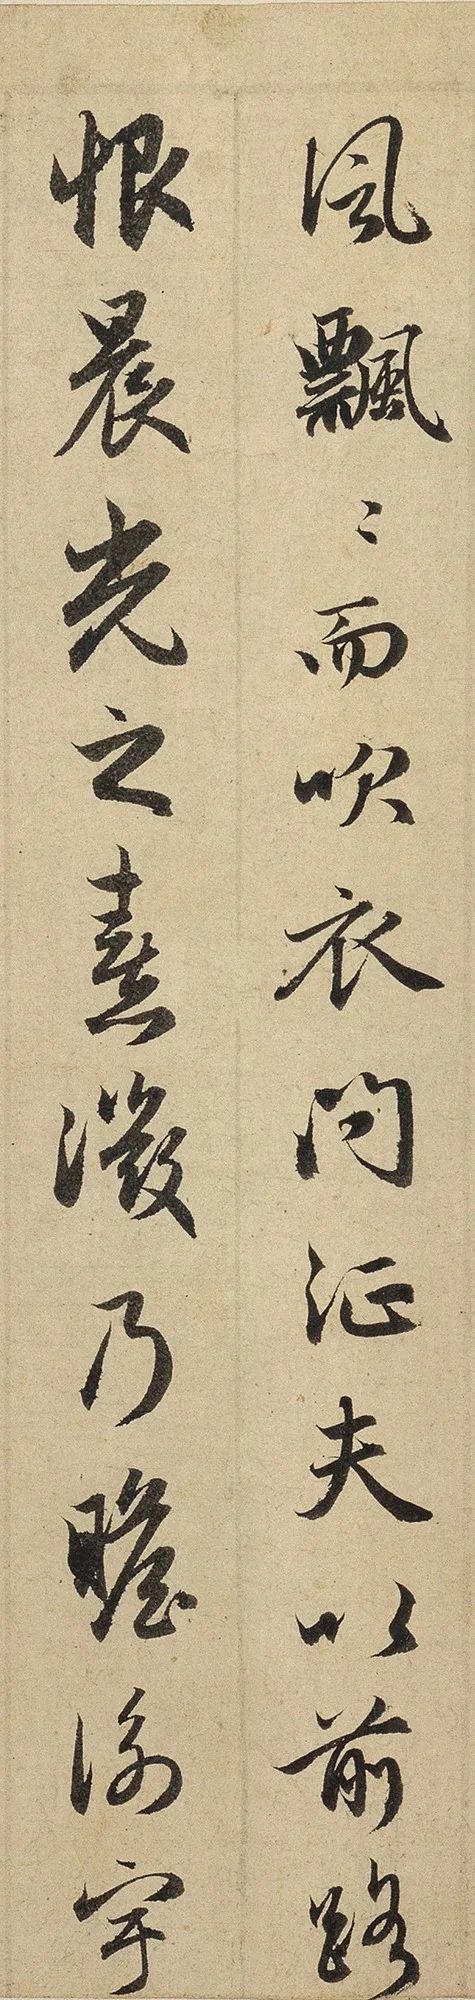 風飄〻而吹衣問征夫以前路
恨晨光之熹微乃瞻衡宇